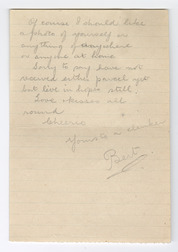 Of course I should like
a photo of yourself or
anything of anywhere
or anyone at home
Sorry to say have not
received either parcel yet
but live in hopes still.
Love & kisses all
round
Cheerio
Yours to a